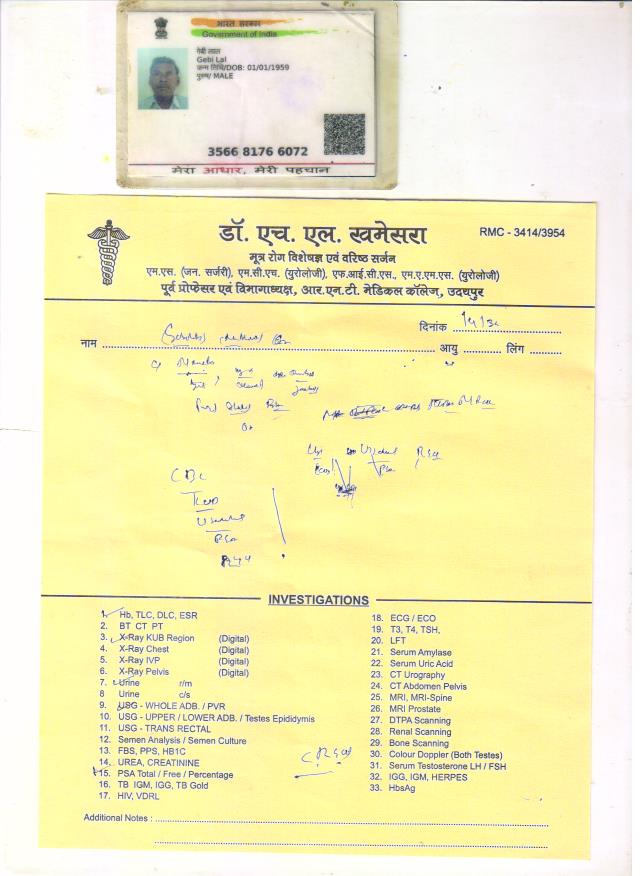 भारत सरकार
Government of India
गेबी लाल
Gebi Lal
जन्म तिथि/DOB: 01/01/1959
पुरुष/ MALE
3566 8176 6072
मेरा आधार, मेरी पहचान
डॉ. एच. एल. खमेसरा
RMC - 3414/3954
मूत्र रोग विशेषज्ञ एवं वरिष्ठ सर्जन
एम.एस. (जन. सर्जरी), एम.सी.एच. (युरोलोजी), एफ.आई.सी.एस., एम.ए.एम.एस. (युरोलोजी)
पूर्व प्रोफेसर एवं विभागाध्यक्ष, आर.एन.टी. मेडिकल कॉलेज, उदयपुर
दिनांक
नाम आयु लिंग
CBC
INVESTIGATIONS
1. Hb, TLC, DLC, ESR
2. BT CT PT
3. X-Ray KUB Region (Digital)
4. X-Ray Chest (Digital)
5. X-Ray IVP (Digital)
6. X-Ray Pelvis (Digital)
7. Urine r/m
8 Urine c/s
9. USG - WHOLE ADB. / PVR
10. USG - UPPER / LOWER ADB. / Testes Epididymis
11. USG - TRANS RECTAL
12. Semen Analysis / Semen Culture
13. FBS, PPS, HB1C
14. UREA, CREATININE
15. PSA Total / Free / Percentage
16. TB IGM, IGG, TB Gold
17. HIV, VDRL
18. ECG / ECO
19. T3, T4, TSH,
20. LFT
21. Serum Amylase
22. Serum Uric Acid
23. CT Urography
24. CT Abdomen Pelvis
25. MRI, MRI-Spine
26. MRI Prostate
27. DTPA Scanning
28. Renal Scanning
29. Bone Scanning
30. Colour Doppler (Both Testes)
31. Serum Testosterone LH / FSH
32. IGG, IGM, HERPES
33. HbsAg
Additional Notes :